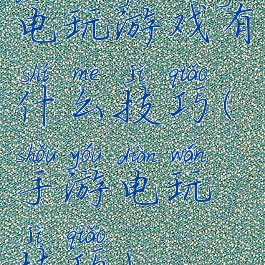 电玩游戏有
shí me jì qiǎo
什么技巧(
shǒu yóu diàn wán
手游电玩
jì qiǎo
技巧)